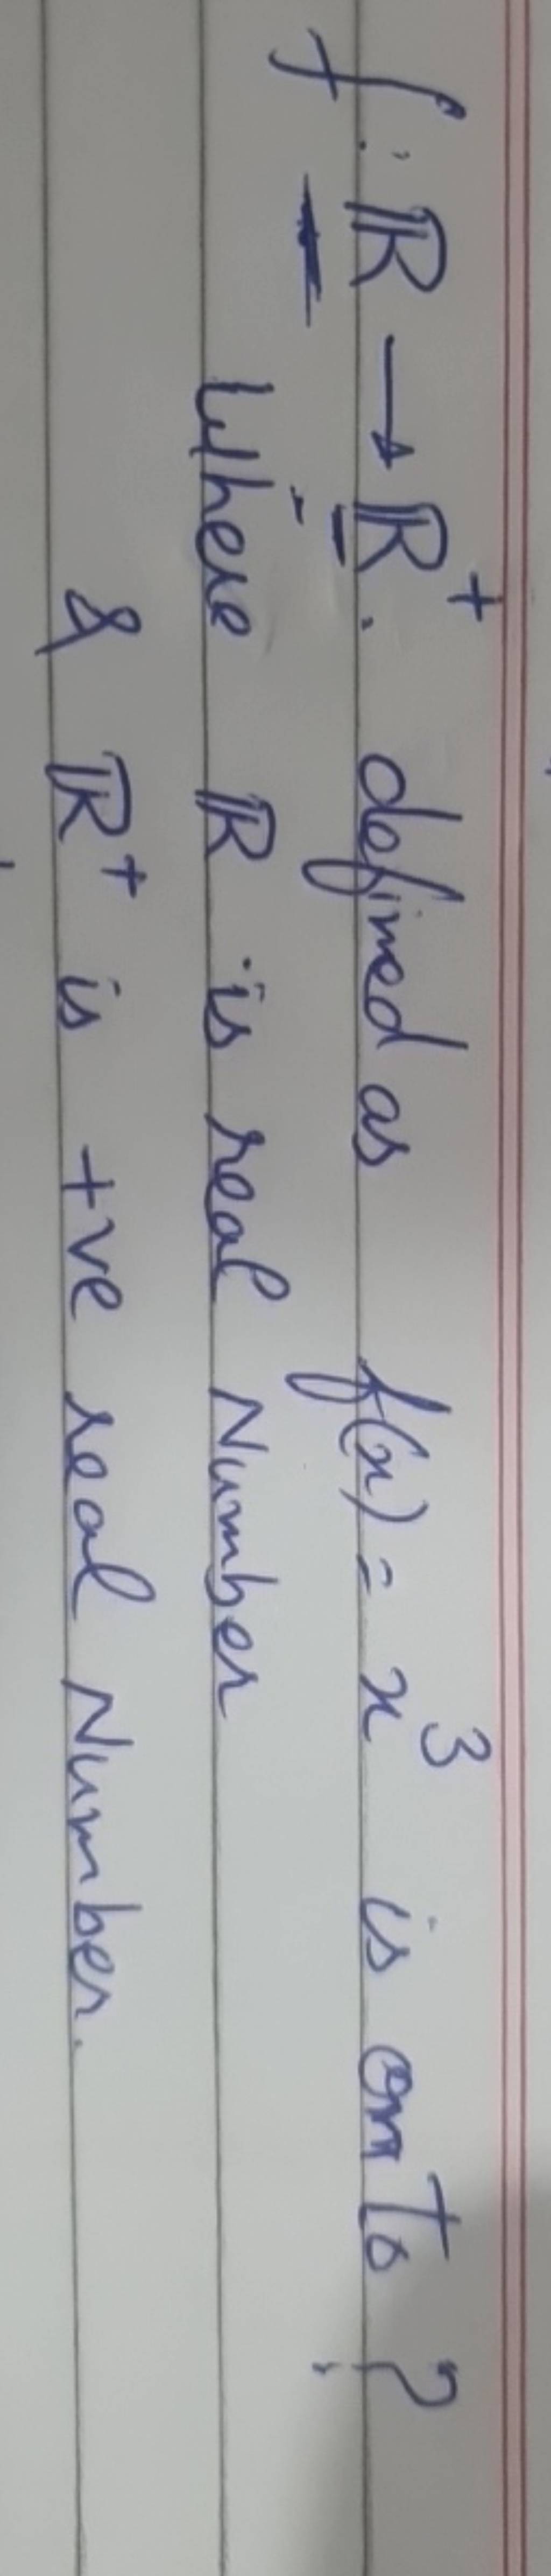 f : ℝ → ℝ⁺. defined as f(x) = x³ is onto ?
Where ℝ is real Number
& ℝ⁺ is +ve real Number.